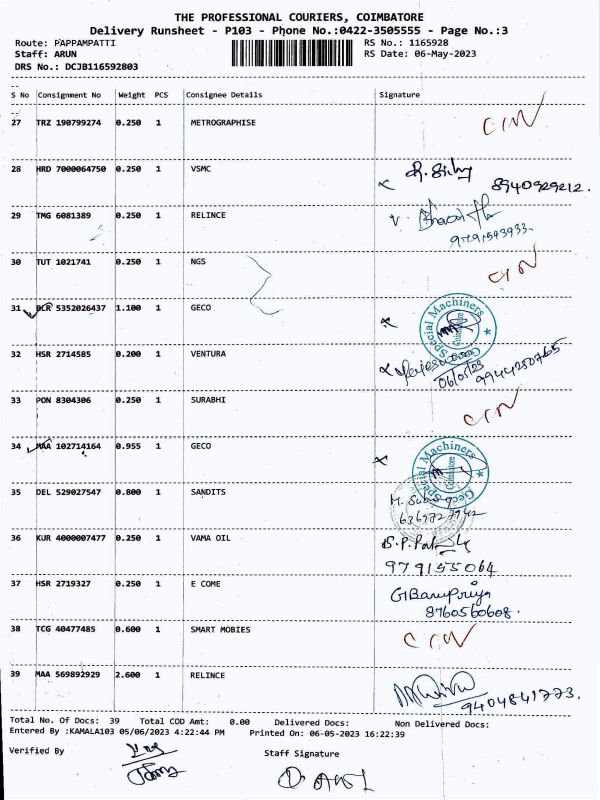 THE PROFESSIONAL COURIERS, COIMBATORE
Delivery Runsheet - P103 - Phone No.:0422-3505555 - Page No.:3
Route: PAPPAMPATTI RS No.: 1165928
Staff: ARUN RS Date: 06-May-2023
DRS No.: DCJB116592803
S No Consignment No Weight PCS Consignee Details Signature
27 TRZ 190799274 0.250 1 METROGRAPHISE
28 HRD 7000064750 0.250 1 VSMC
8940929212.
29 TMG 6081389 0.250 1 RELINCE
30 TUT 1021741 0.250 1 NGS
31 BLR 5352026437 1.100 1 GECO
Special Machiners Geco Coimbatore
32 HSR 2714585 0.200 1 VENTURA
06/05/23 9944250765
33 PON 8304306 0.250 1 SURABHI
34 MAA 102714164 0.955 1 GECO
Special Machiners Geco Coimbatore
35 DEL 529027547 0.800 1 SANDITS
36 KUR 4000007477 0.250 1 VAMA OIL
9791155064
37 HSR 2719327 0.250 1 E COME
8760560608.
38 TCG 40477485 0.600 1 SMART MOBIES
39 MAA 569892929 2.600 1 RELINCE
9404841773.
Total No. Of Docs: 39 Total COD Amt: 0.00 Delivered Docs: Non Delivered Docs:
Entered By :KAMALA103 05/06/2023 4:22:44 PM Printed On: 06-05-2023 16:22:39
Verified By Staff Signature